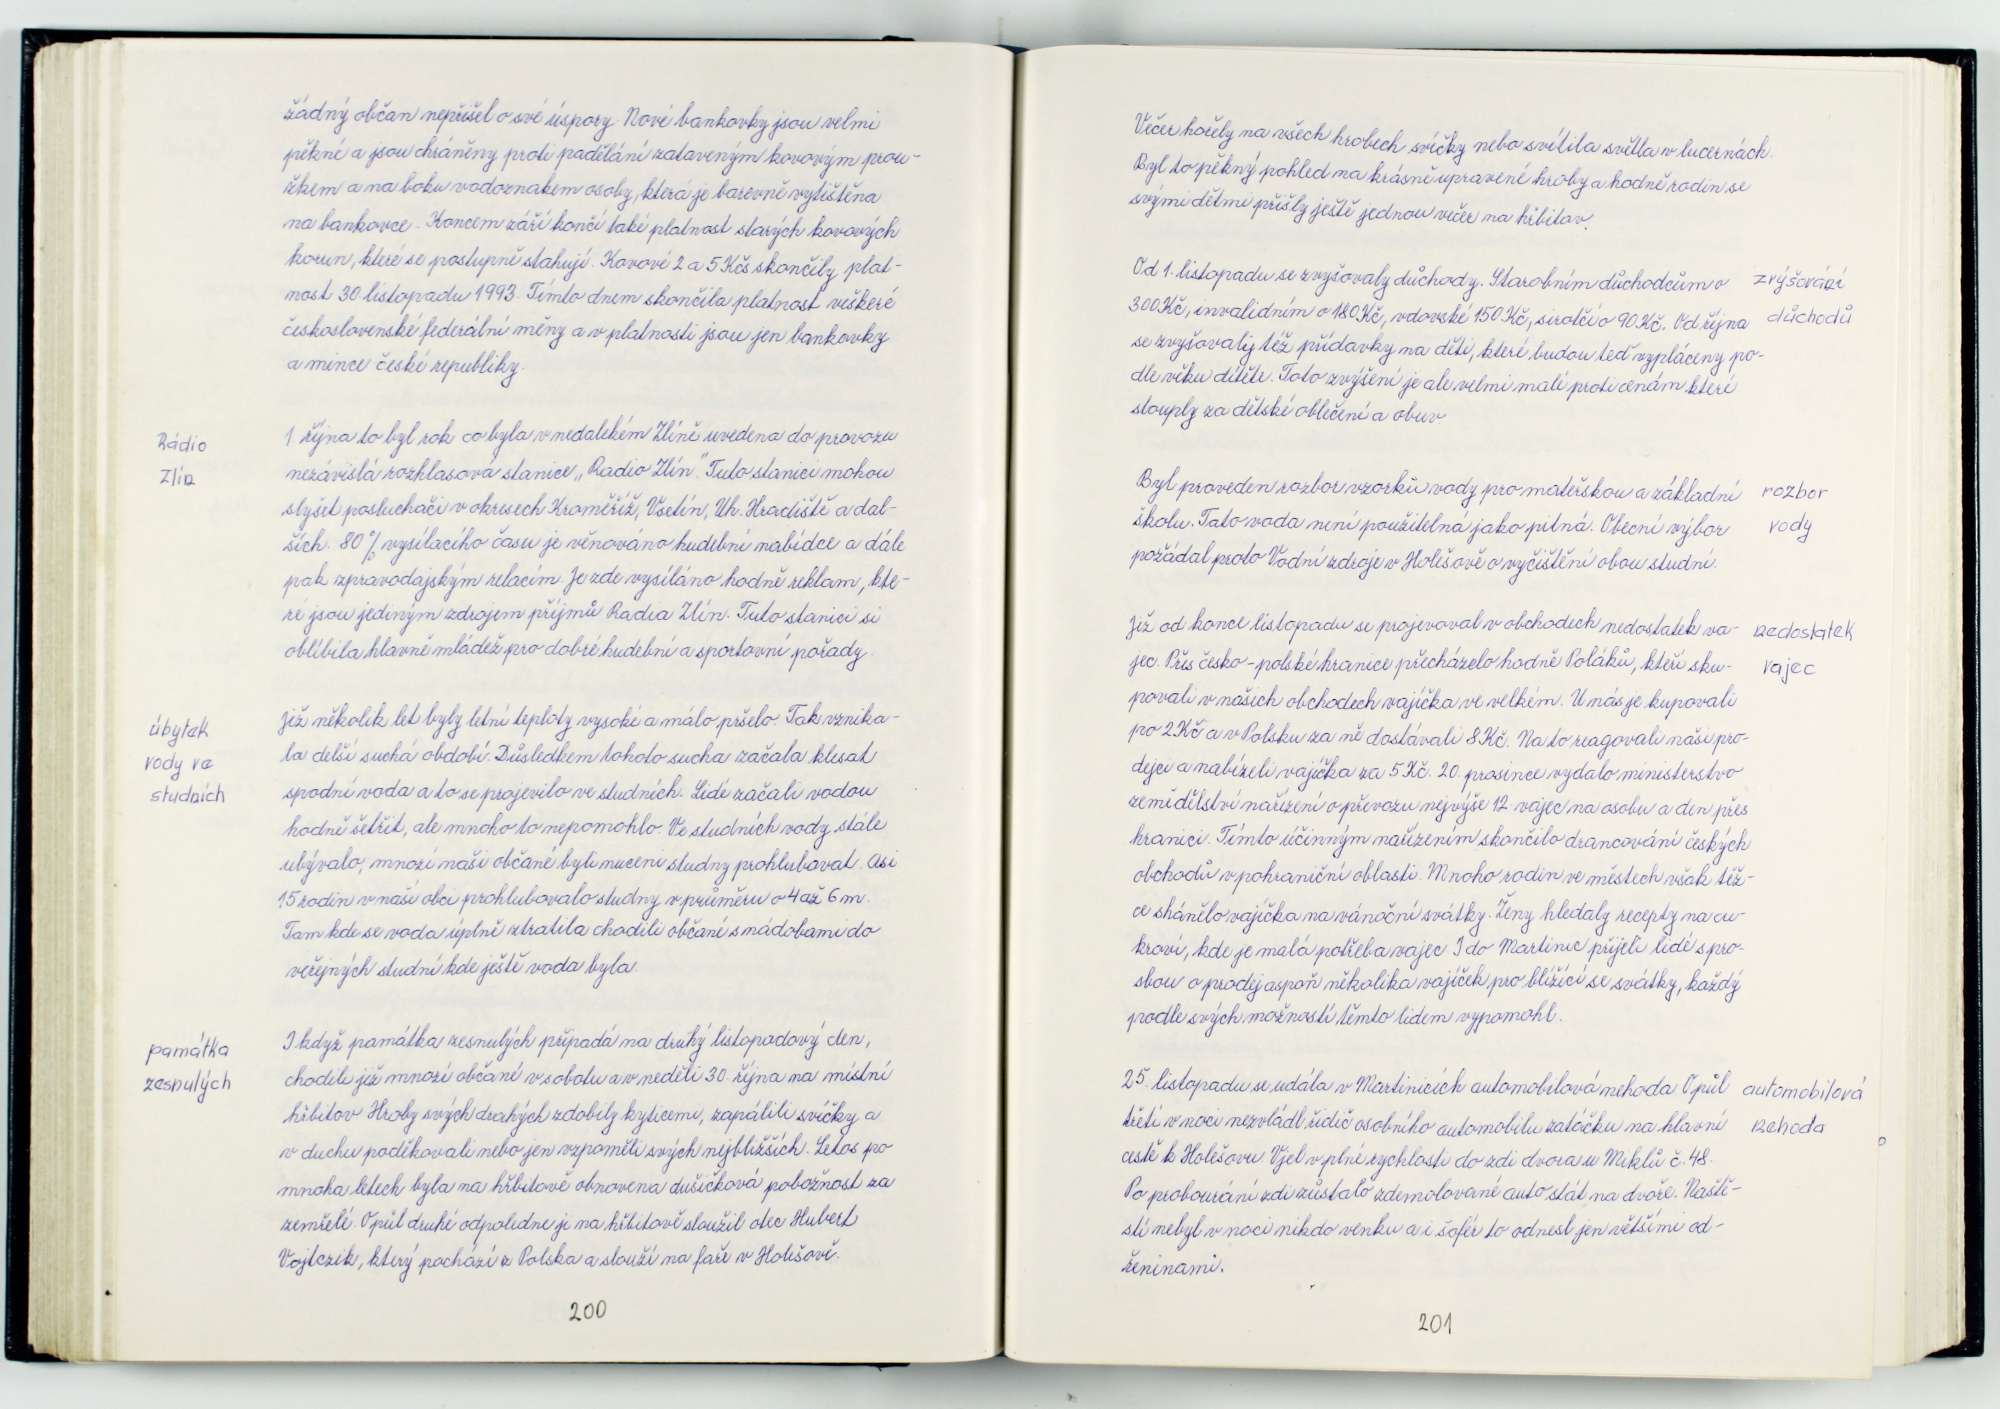 žádný občan nepřišel o své úspory. Nové bankovky jsou velmi
pěkné a jsou chráněny proti padělání zataveným kovovým prou-
žkem a na boku vodoznakem osoby, která je barevně vytištěna
na bankovce. Koncem září končí také platnost starých kovových
korun, které se postupně stahují. Kovové 2 a 5 Kčs skončily plat-
nost 30. listopadu 1993. Tímto dnem skončila platnost veškeré
československé federální měny a v platnosti jsou jen bankovky
a mince české republiky.
Rádio
Zlín
1. října to byl rok co byla v nedalekém Zlíně uvedena do provozu
nezávislá rozhlasová stanice „Radio Zlín". Tuto stanici mohou
slyšet posluchači v okresech Kroměříž, Vsetín, Uh. Hradiště a dal-
ších. 80% vysílacího času je věnováno hudební nabídce a dále
pak zpravodajským relacím. Je zde vysíláno hodně reklam, kte-
ré jsou jediným zdrojem příjmů Radia Zlín. Tuto stanici si
oblíbila hlavně mládež pro dobré hudební a sportovní pořady.
úbytek
vody ve
studních
Již několik let byly letní teploty vysoké a málo pršelo. Tak vznika-
la delší suchá období. Důsledkem tohoto sucha začala klesat
spodní voda a to se projevilo ve studních. Lidé začali vodou
hodně šetřit, ale mnoho to nepomohlo. Ve studních vody stále
ubývalo, mnozí naši občané byli nuceni studny prohlubovat. Asi
15 rodin v naší obci prohlubovalo studny v průměru o 4 až 6 m.
Tam kde se voda úplně ztratila chodili občané s nádobami do
veřejných studní kde ještě voda byla.
památka
zesnulých
I když památka zesnulých připadá na druhý listopadový den,
chodili již mnozí občané v sobotu a v neděli 30. října na místní
hřbitov. Hroby svých drahých zdobily kyticemi, zapálili svíčky a
v duchu poděkovali nebo jen vzpoměli svých nejbližších. Letos po
mnoha letech byla na hřbitově obnovena dušičková pobožnost za
zemřelé. O půl druhé odpoledne ji na hřbitově sloužil otec Hubert
Vojtczik, který pochází z Polska a slouží na faře v Holešově.
200
Večer hořely na všech hrobech svíčky nebo svítila světla v lucernách.
Byl to pěkný pohled na krásně upravené hroby a hodně rodin se
svými dětmi přišly ještě jednou večer na hřbitov.
Od 1. listopadu se zvyšovaly důchody. Starobním důchodcům o
300 Kč, invalidním o 180 Kč, vdovské 150 Kč, sirotčí o 90 Kč. Od října
se zvyšovaly též přídavky na děti, které budou teď vypláceny po-
dle věku dítěte. Toto zvýšení je ale velmi malé proti cenám které
stouply za dětské oblečení a obuv
zvyšování
důchodů
Byl proveden rozbor vzorků vody pro mateřskou a základní
školu. Tato voda není použitelná jako pitná. Obecní výbor
požádal proto Vodní zdroje v Holešově o vyčištění obou studní.
rozbor
vody
Již od konce listopadu se projevoval v obchodech nedostatek va-
jec. Přes česko-polské hranice přecházelo hodně Poláků, kteří sku-
povali v našich obchodech vajíčka ve velkém. U nás je kupovali
po 2 Kč a v Polsku za ně dostávali 8 Kč. Na to reagovali naši pro-
dejci a nabízeli vajíčka za 5 Kč. 20. prosince vydalo ministerstvo
zemědělství nařízení o převozu nejvýše 12 vajec na osobu a den přes
hranici. Tímto účinným nařízením skončilo drancování českých
obchodů v pohraniční oblasti. Mnoho rodin ve městech však těž-
ce shánělo vajíčka na vánoční svátky. Ženy hledaly recepty na cu-
kroví, kde je malá potřeba vajec. I do Martinic přijeli lidé s pro-
sbou o prodej aspoň několika vajíček pro blížící se svátky, každý
podle svých možností těmto lidem vypomohl.
nedostatek
vajec
25. listopadu se udála v Martinicích automobilová nehoda. O půl
třetí v noci nezvládl řidič osobního automobilu zatáčku na hlavní
cestě k Holešovu. Vjel v plné rychlosti do zdi dvora u Miklů č. 48.
Po probourání zdi zůstalo zdemolované auto stát na dvoře. Naště-
stí nebyl v noci nikdo venku a i šofér to odnesl jen většími od-
řeninami.
automobilová
nehoda
201